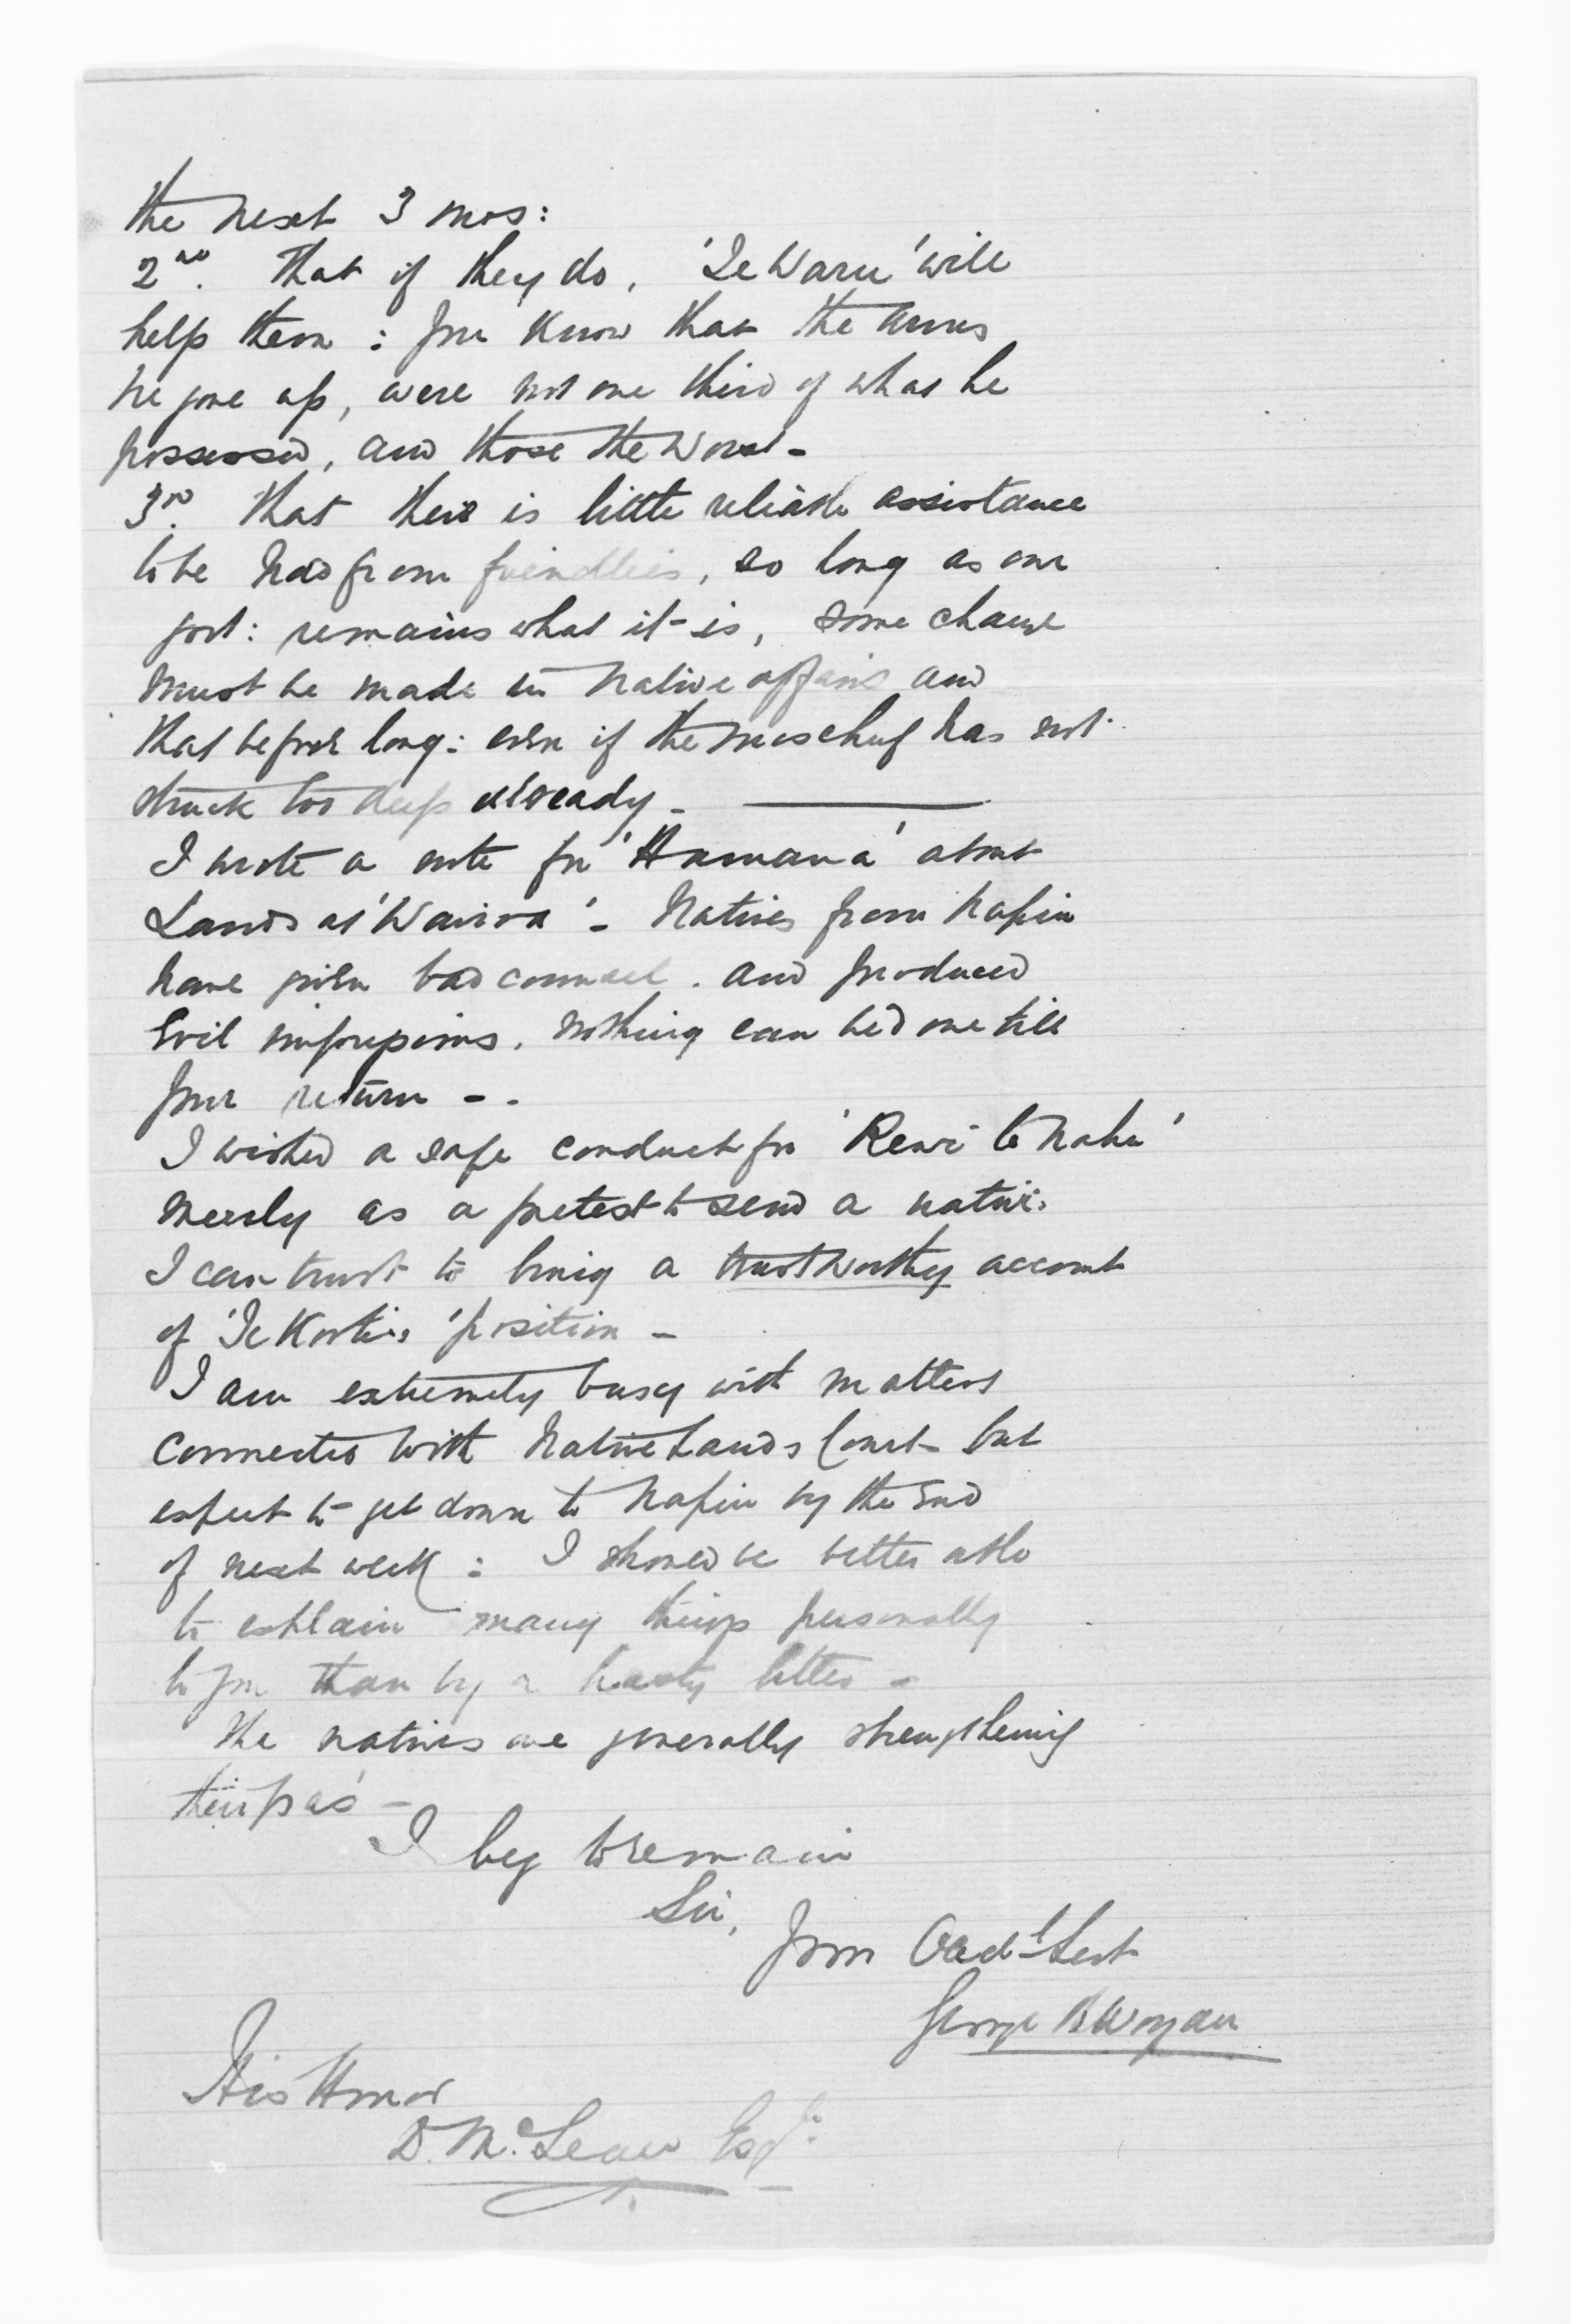 the next 3 mos:
2nd. That if they do, 'Te Waru' will
help them: you know that the arms
he gave up, were not one third of what he
possessed, and those the worst -
3rd. That there is little reliable assistance
to be had from friendlies, so long as our
govt: remains what it is, some change
must be made in Native affairs and
that before long: even if the mischief has not
struck too deep already -
I wrote a note for 'Hamana' about
Lands at 'Wairoa' - Natives from Napier
have given bad counsel. and produced
Evil impressions. Nothing can be done till
your return - -
I wished a safe conduct for 'Rewi te
Merely as a pretext to send a native
I can trust to bring a trustworthy account
of 'Te Kooti's' position -
I am extremely busy with matters
connected with Native Lands Court but
expect to get down to Napier by the End
of next week: I should be better able
to explain many things personally
to you than by a hasty letter -
The natives are generally strengthening
their pas -
I beg to remain
Sir,
Your Obedt Servt
George B Worgan
His Honor
D. McLean Esqr.